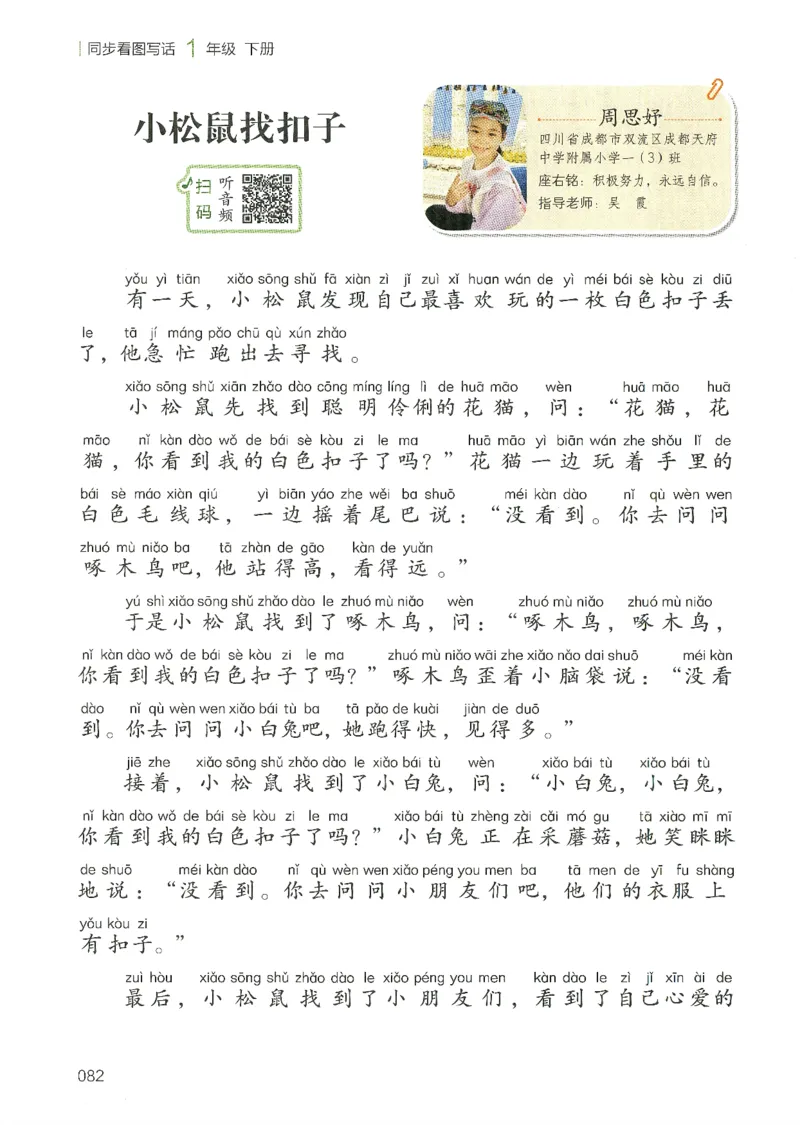 同步看图写话 1 年级 下册
小松鼠找扣子
扫码
听音频
周思妤
四川省成都市双流区成都天府
中学附属小学一（3）班
座右铭：积极努力，永远自信。
指导老师：吴 霞
yǒu yì tiān xiǎo sōng shǔ fā xiàn zì jǐ zuì xǐ huan wán de yì méi bái sè kòu zi diū
有一天，小松鼠发现自己最喜欢玩的一枚白色扣子丢
le tā jí máng pǎo chū qù xún zhǎo
了，他急忙跑出去寻找。
xiǎo sōng shǔ xiān zhǎo dào cōng míng líng lì de huā māo wèn huā māo huā
小松鼠先找到聪明伶俐的花猫，问：“花猫，花
māo nǐ kàn dào wǒ de bái sè kòu zi le ma huā māo yì biān wán zhe shǒu lǐ de
猫，你看到我的白色扣子了吗？”花猫一边玩着手里的
bái sè máo xiàn qiú yì biān yáo zhe wěi ba shuō méi kàn dào nǐ qù wèn wen
白色毛线球，一边摇着尾巴说：“没看到。你去问问
zhuó mù niǎo ba tā zhàn de gāo kàn de yuǎn
啄木鸟吧，他站得高，看得远。”
yú shì xiǎo sōng shǔ zhǎo dào le zhuó mù niǎo wèn zhuó mù niǎo zhuó mù niǎo
于是小松鼠找到了啄木鸟，问：“啄木鸟，啄木鸟，
nǐ kàn dào wǒ de bái sè kòu zi le ma zhuó mù niǎo wāi zhe xiǎo nǎo dai shuō méi kàn
你看到我的白色扣子了吗？”啄木鸟歪着小脑袋说：“没看
dào nǐ qù wèn wen xiǎo bái tù ba tā pǎo de kuài jiàn de duō
到。你去问问小白兔吧，她跑得快，见得多。”
jiē zhe xiǎo sōng shǔ zhǎo dào le xiǎo bái tù wèn xiǎo bái tù xiǎo bái tù
接着，小松鼠找到了小白兔，问：“小白兔，小白兔，
nǐ kàn dào wǒ de bái sè kòu zi le ma xiǎo bái tù zhèng zài cǎi mó gu tā xiào mī mī
你看到我的白色扣子了吗？”小白兔正在采蘑菇，她笑眯眯
de shuō méi kàn dào nǐ qù wèn wen xiǎo péng you men ba tā men de yī fu shàng
地说：“没看到。你去问问小朋友们吧，他们的衣服上
yǒu kòu zi
有扣子。”
zuì hòu xiǎo sōng shǔ zhǎo dào le xiǎo péng you men kàn dào le zì jǐ xīn ài de
最后，小松鼠找到了小朋友们，看到了自己心爱的
082